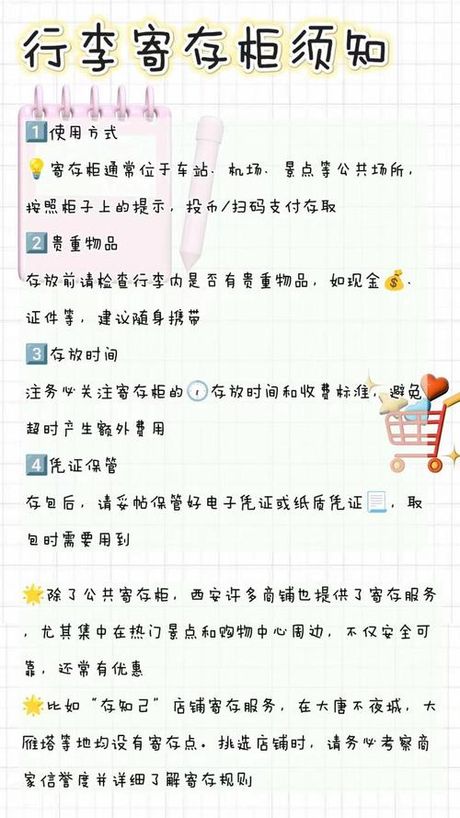 行李寄存柜须知
1使用方式
💡寄存柜通常位于车站、机场、景点等公共场所，
按照柜子上的提示，投币/扫码支付存取
2贵重物品
存放前请检查行李内是否有贵重物品，如现金💰、
证件等，建议随身携带
3存放时间
注务必关注寄存柜的🕐存放时间和收费标准，避免
超时产生额外费用
4凭证保管
存包后，请妥帖保管好电子凭证或纸质凭证📃，取
包时需要用到
🌟除了公共寄存柜，西安许多商铺也提供了寄存服务
，尤其集中在热门景点和购物中心周边，不仅安全可
靠，还常有优惠
🌟比如“存知己”店铺寄存服务，在大唐不夜城，大
雁塔等地均设有寄存点。挑选店铺时，请务必考察商
家信誉度并详细了解寄存规则